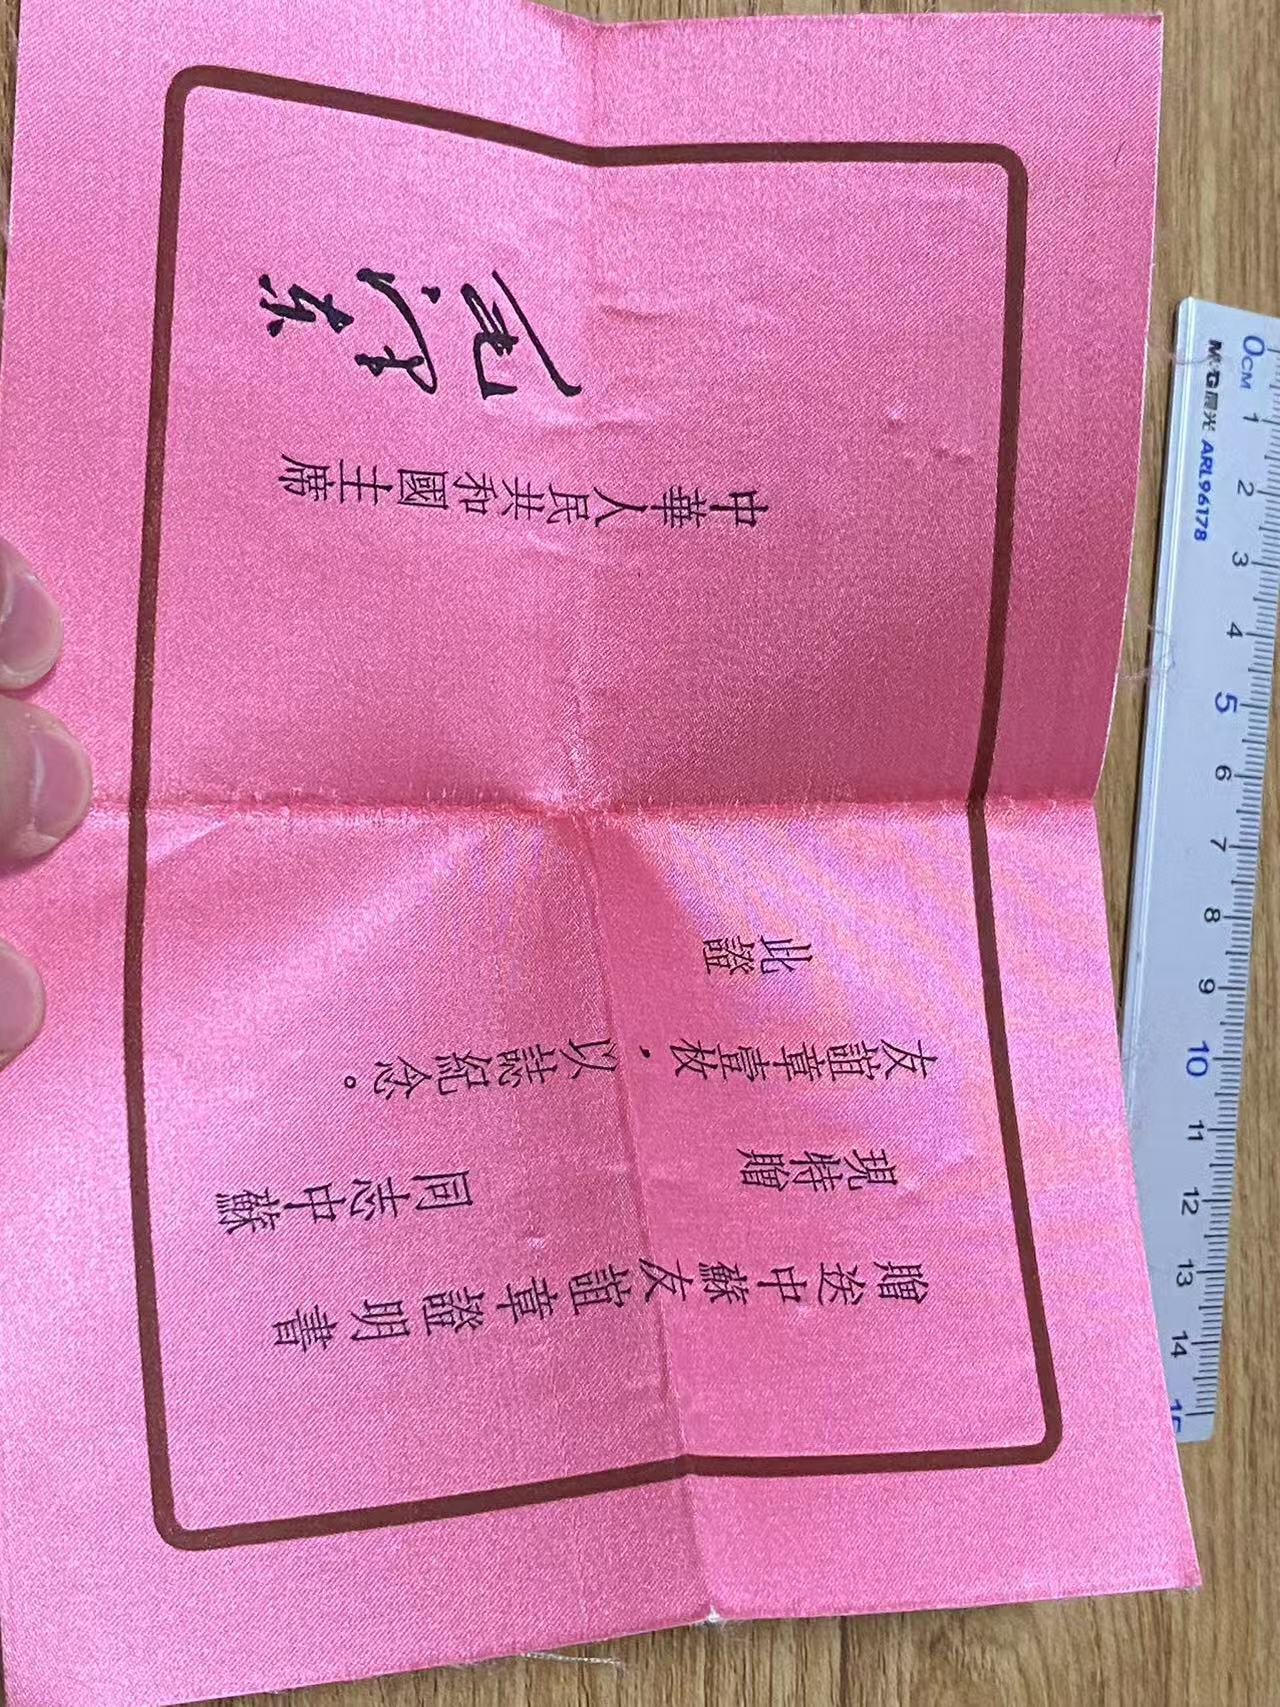 贈送中蘇友誼章證明書
現特贈 同志中蘇
友誼章壹枚，以誌紀念。
此證
中華人民共和國主席
毛澤東
M&G晨光 ARL96178
0CM 1 2 3 4 5 6 7 8 9 10 11 12 13 14 15